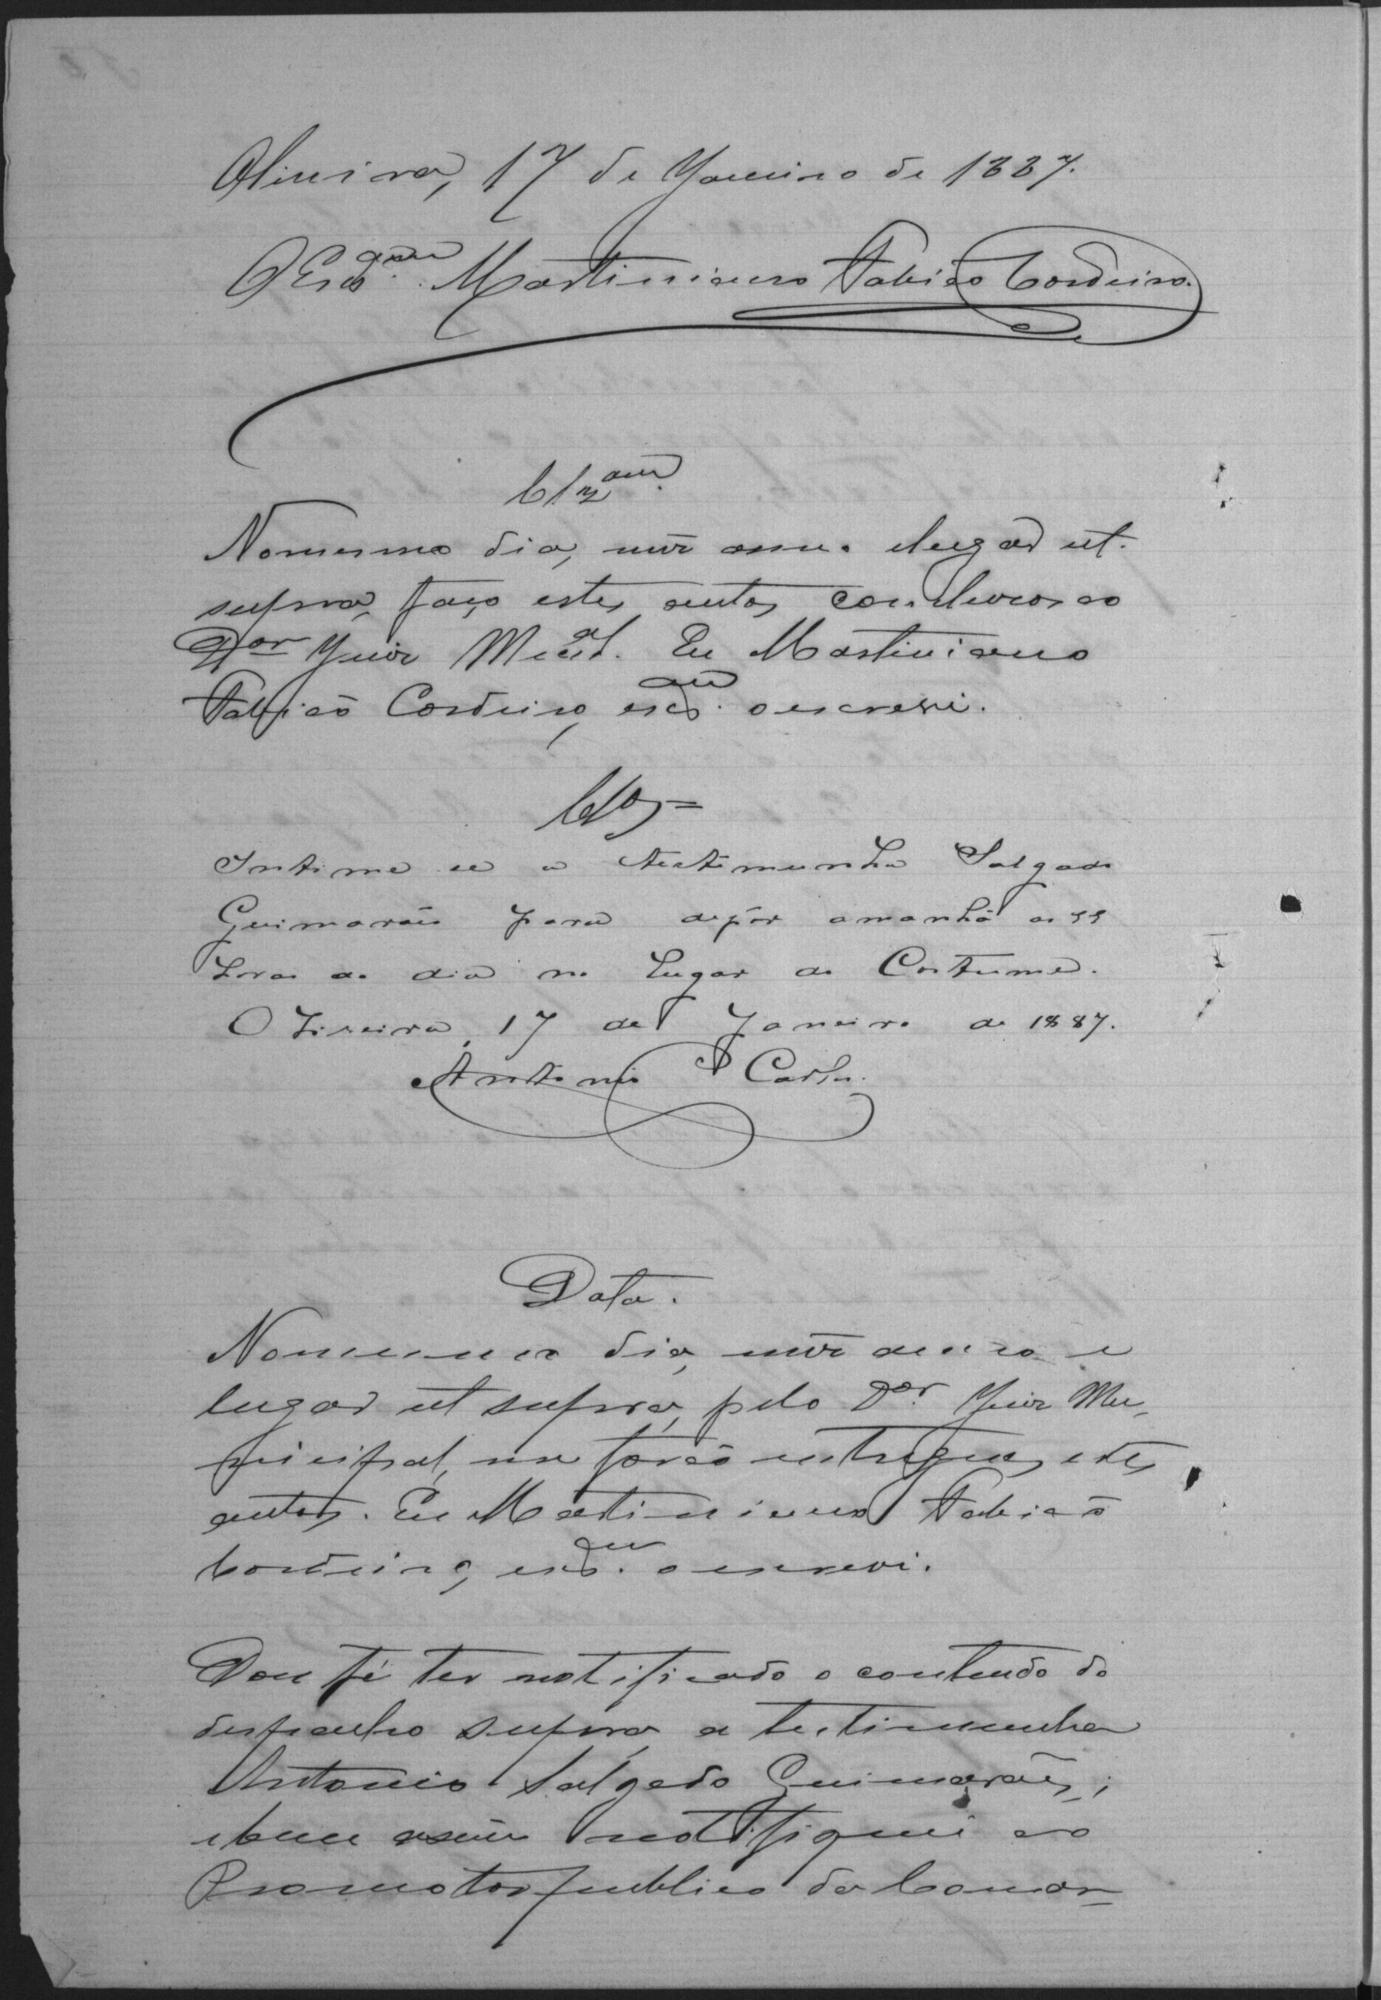 Oliveira, 17 de Janeiro de 1887.
O Escr.am Martiniano Fabião Cordeiro.
Clz.am
Nomesmo dia, mez anno elugar ut.
supra, faço estes autos conclusos ao
Dor Juiz M.al. Eu Martiniano
Fabião Cordeiro, escr.am oescrevi.
Clos=
Intime se a testemunha Salgado
Guimarães para depôr amanhã as 11
horas do dia no lugar do Costume.
Oliveira, 17 de Janeiro de 1887.
Antonio Carlos.
Data.
Nomesmo dia, mez anno e
lugar ut supra, pelo Dor. Juiz Mu-
nicipal, me forão entregues estes
autos. Eu Martiniano Fabião
Cordeiro, escr.am oescrevi.
Dou fé ter notificado o contendo do
despacho supra, a testimunha
Antonio Salgado Guimarães;
ebem assim notifiquei ao
Promotor publico da Comar-